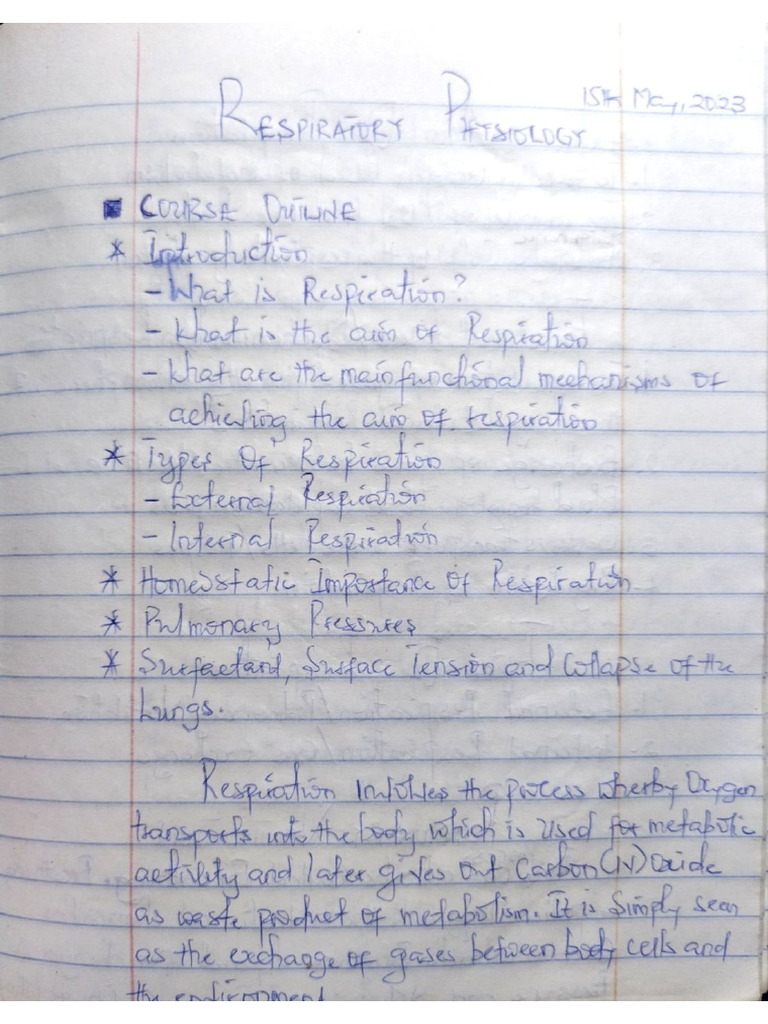 15th May, 2023
RESPIRATORY PHYSIOLOGY
COURSE OUTLINE
* Introduction
- What is Respiration?
- What is the aim of Respiration
- What are the main functional mechanisms of
achieving the aim of respiration
* Types Of Respiration
- External Respiration
- Internal Respiration
* Homeostatic Importance of Respiration
* Pulmonary Pressures
* Surfactant, Surface Tension and Collapse of the
Lungs.
Respiration involves the process wherby Oxygen
transports into the body which is used for metabolic
activity and later gives out Carbon(IV)Oxide
as waste product of metabolism. It is simply seen
as the exchange of gases between body cells and
the environment